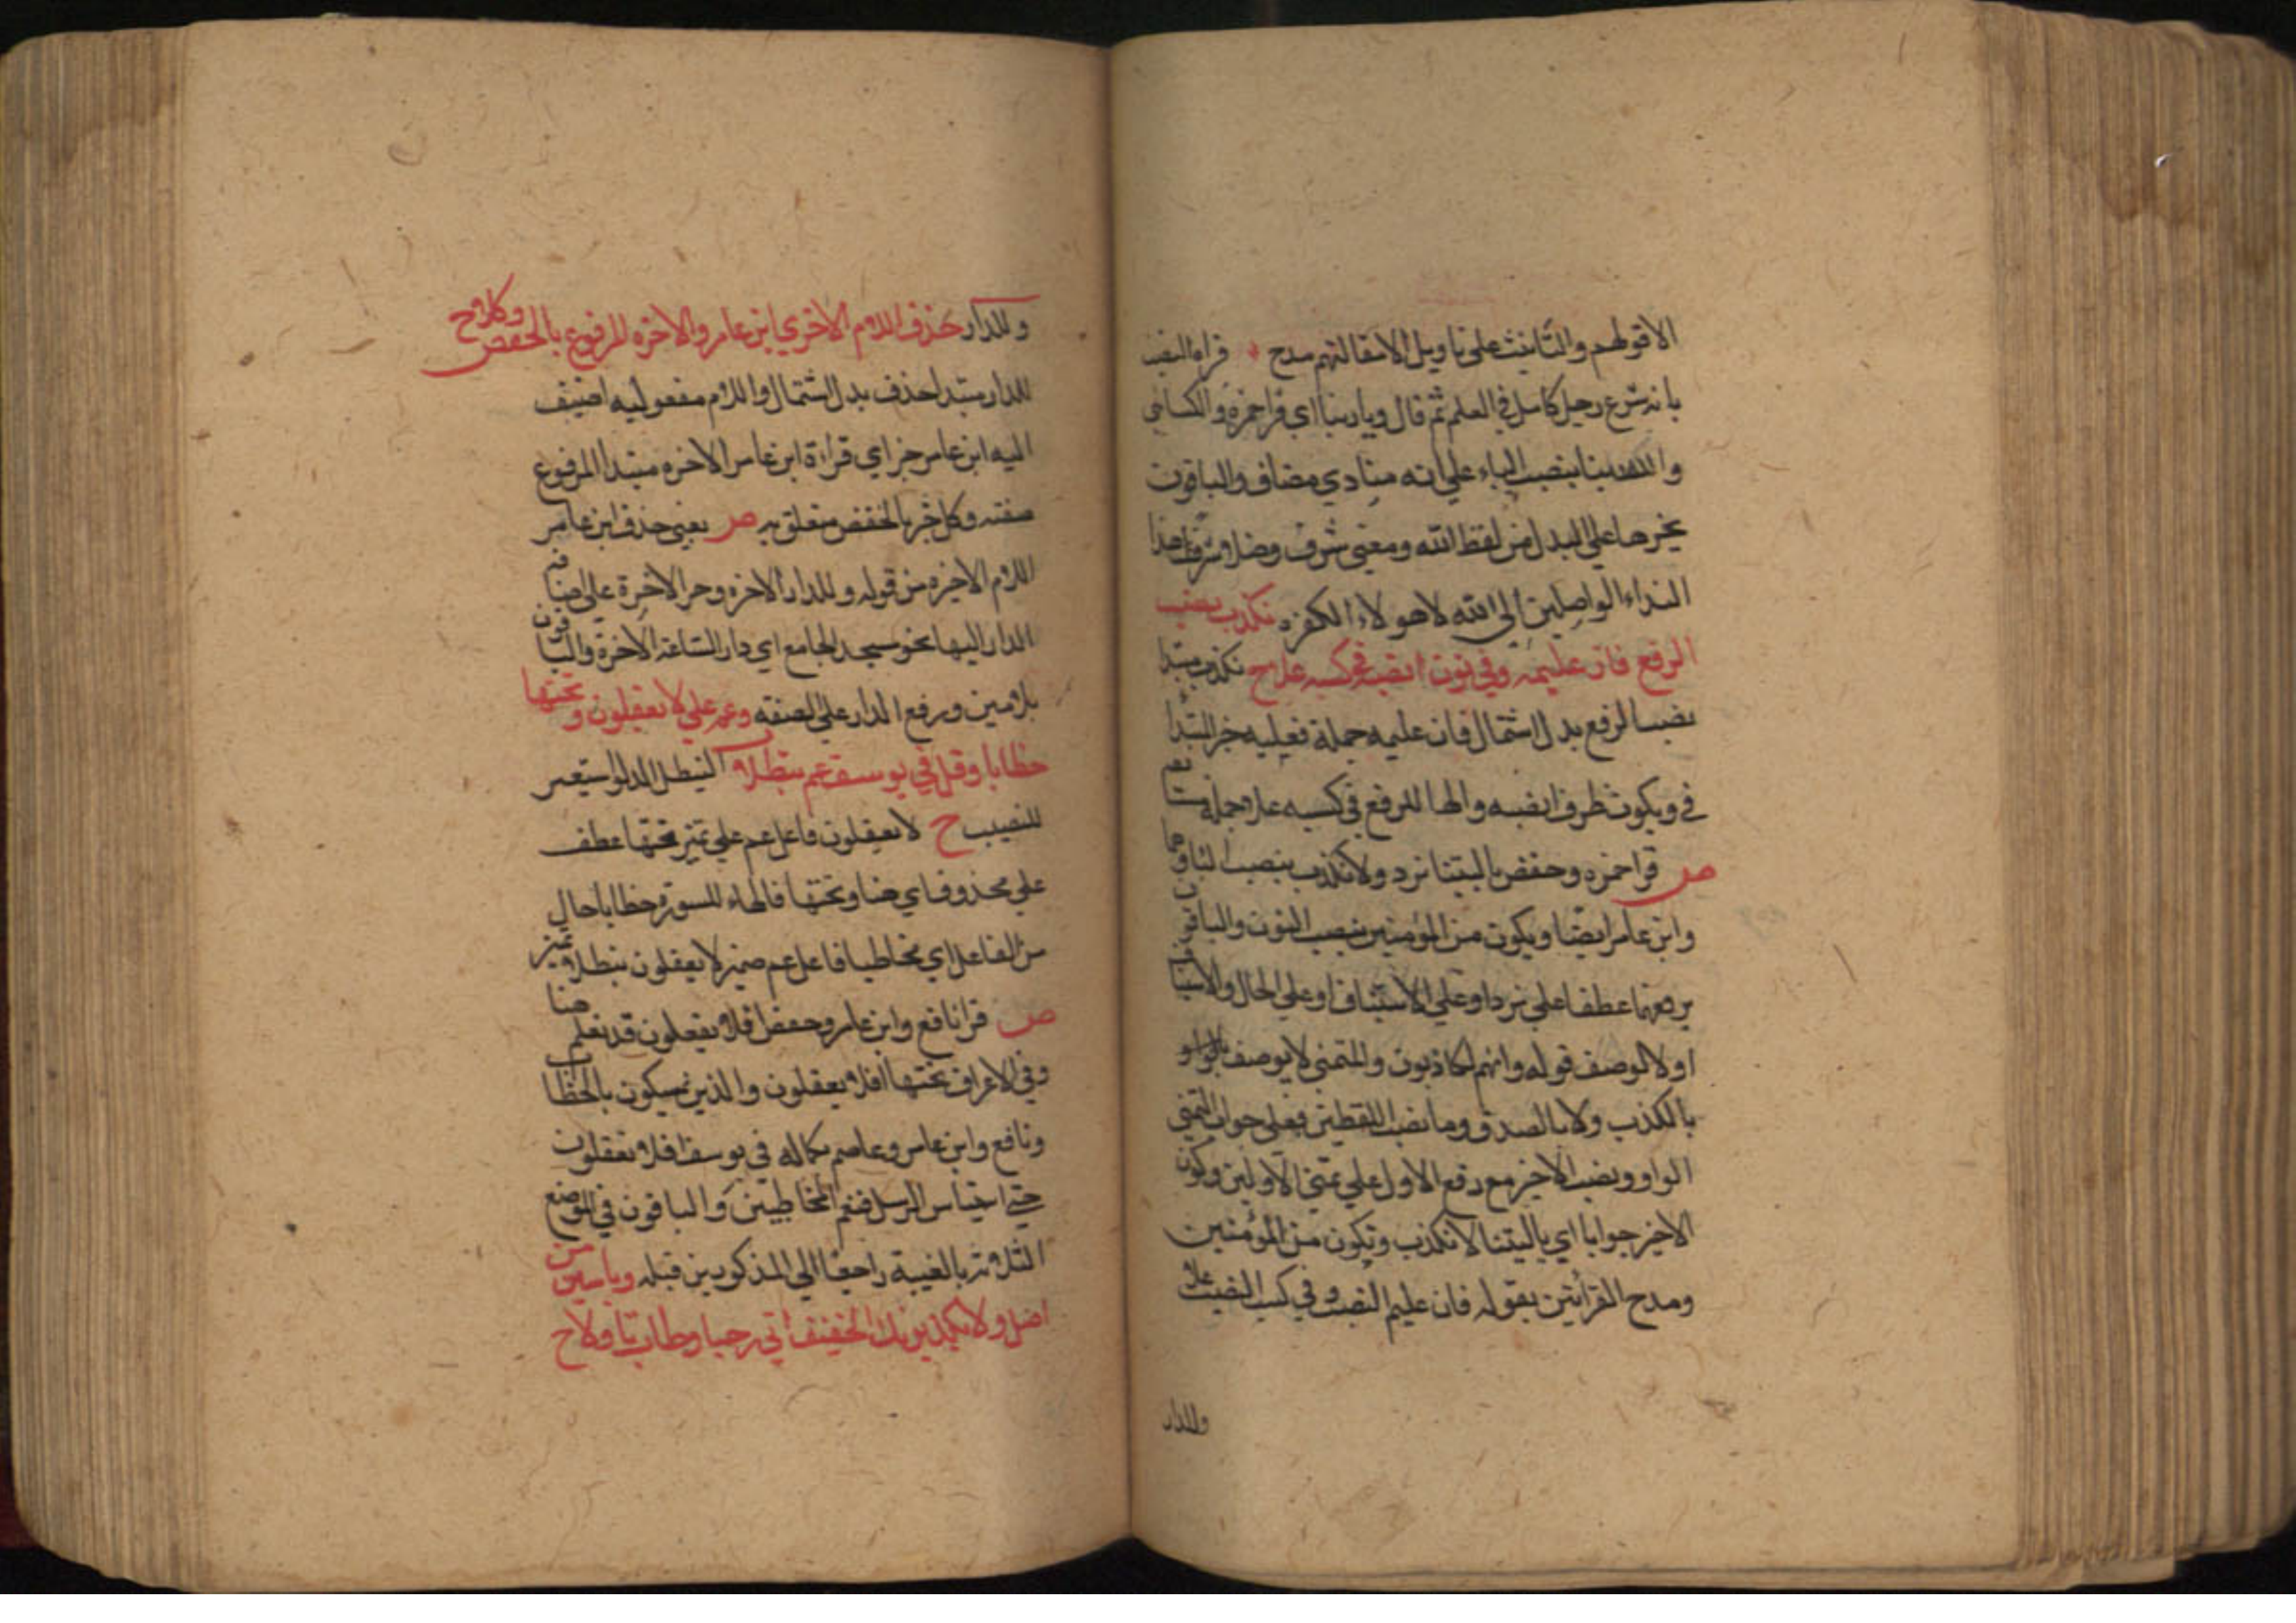 الاقولهم والتانيث على تاويل الامقالتهم مدح قراه النصب
بانه شرع رجل كامل في العلم ثم قال وياربنا اي قرا حمزه والكسائي
والله ربنا بنصب الباء على انه منادي مضاف والباقون
بجرها على البدل من لفظ الله ومعنى شرف وصلا وشرف هذا
النداء الواصلين الى الله لا هولاء الكفره نكذب نصب
الرفع فاز عليمه وفي ونكون انصبه في كسبه علا ح نكذب مبتدا
نصب الرفع بدل اشتمال فاز عليمه جملة فعليه خبر المبتدا
في ويكون ظرف انصبه والها للرفع في كسبه علا جملة مستانفه
ص قرا حمزه وحفص باليتنا نرد ولا نكذب بنصب الباء وهما
وابن عامر ايضا ويكون من المؤمنين بنصب النون والباقون
برفعهما عطفا على نرد او على الاستيناف او على الحال والاستيناف
اولا لوصف قوله وانهم لكاذبون والمتمني لا يوصف
بالكذب ولا بالصدق وما نصب اللفظين فعلى جواب التمني
الواو ونصب الاخير مع رفع الاول على تمني الاولين وكون
الاخير جوابا اي ياليتنا لا نكذب ونكون من المؤمنين
ومدح القرأتين بقوله فاز عليم النصب وفي كسب النصيب علا
وللدار
وللدار حذف اللام الاخرى ابن عامر والاخره المرفوع بالخفض وكلا ح
للدار مبتدا حذف بدل اشتمال واللام مفعوليه اضيف
اليه ابن عامر خبر اي قراءة ابن عامر الاخره مبتدا المرفوع
صفته وكلا خبر بالخفض متعلق به ص يعني حذف ابن عامر
اللام الاخيره من قوله وللدار الاخره وجر الاخرة على اضافه
الدار اليها نحو مسجد الجامع اي دار الساعة الاخرة والباقون
بلامين ورفع الدار على الصفه وعم على لا يعقلون وتحتها
خطابا وقل في يوسف عم نيطلا النيطل الدلو استعير
للنصيب ح لا يعقلون فاعل عم على تميز تحتها عطف
على محذوف اي هنا وتحتها فالهاء للسورة خطابا حال
من الفاعل اي مخاطبا فاعل عم ضمير لا يعقلون نيطلا تميز
ص قرا نافع وابن عامر وحفص افلا تعقلون قد نعلم هنا
وفي الاعراف تحتها افلا يعقلون والذين يمسكون بالخطاب
ونافع وابن عامر وعاصم بكماله في يوسف افلا تعقلون
حتى اذا استياس الرسل فنعم المخاطبين والباقون في المواضع
الثلاثة بالغيبة راجعا الى المذكورين قبله وياسين من
اصل ولا يكذبونك الخفيف اتى رحبا وطاب تأولا ح